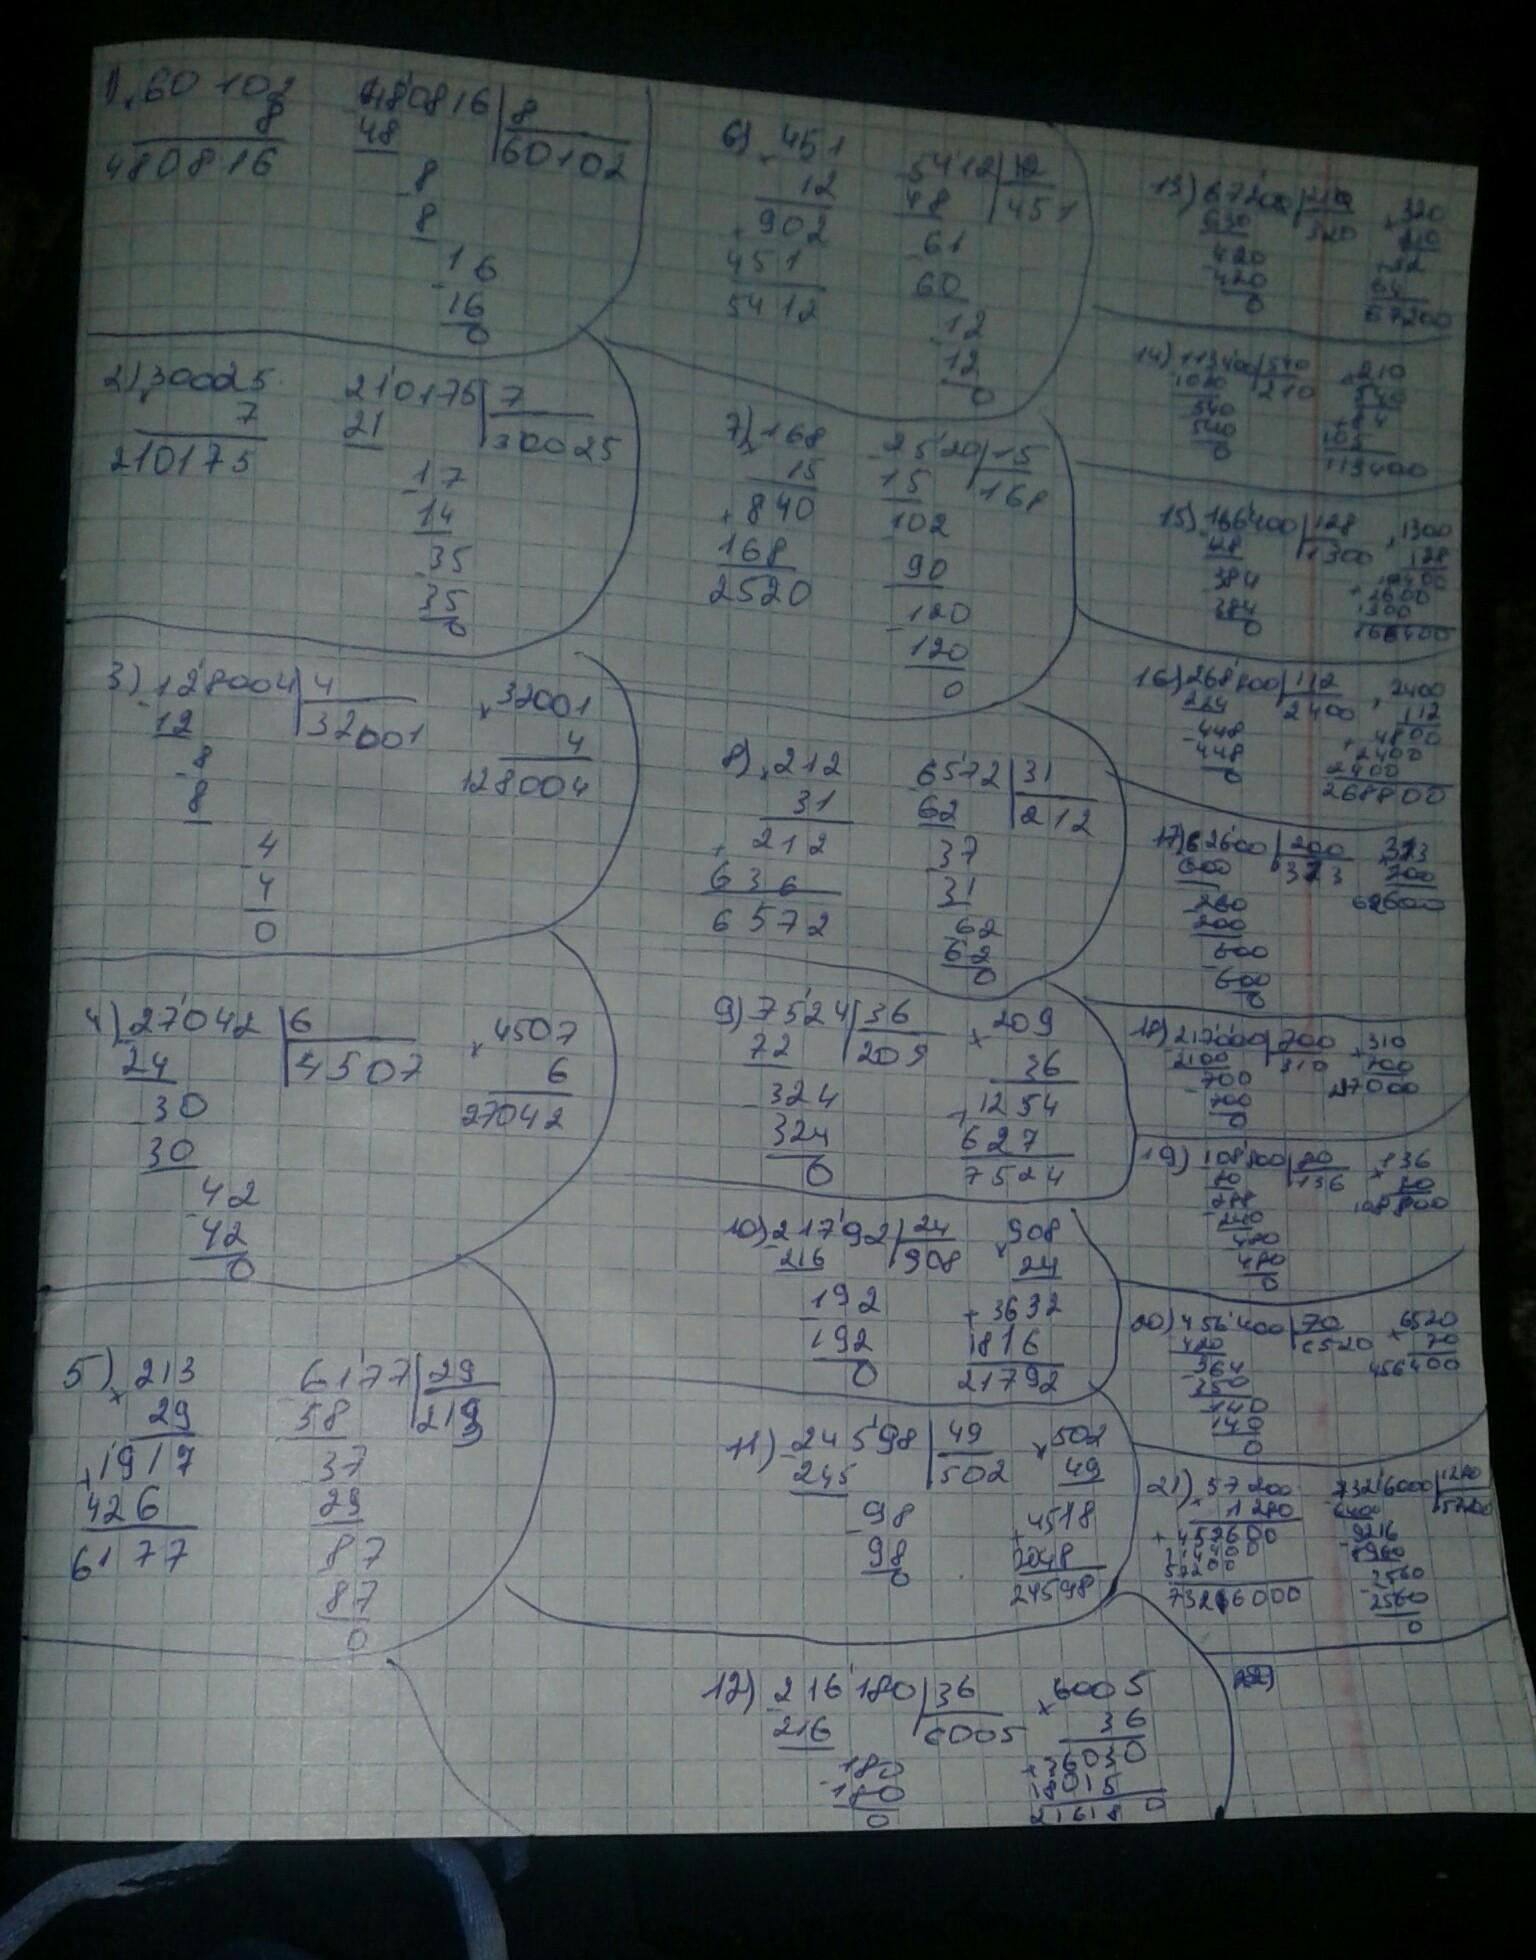 1) × 60 102
8
480816
- 480816 | 8
48 | 60102
- 8
8
- 16
16
0
2) × 30025
7
210175
210175 | 7
21 | 30025
- 17
14
- 35
35
0
3) - 128004 | 4
12 | 32001
- 8
8
- 4
4
0
× 32001
4
128004
4) - 27042 | 6
24 | 4507
- 30
30
- 42
42
0
× 4507
6
27042
5) × 213
29
+ 1917
426
6177
- 6177 | 29
58 | 213
- 37
29
87
87
0
6) × 451
12
+ 902
451
5412
- 5412 | 12
48 | 451
- 61
60
- 12
12
0
7) × 168
15
+ 840
168
2520
- 2520 | 15
15 | 168
102
90
- 120
120
0
8) × 212
31
+ 212
636
6572
6572 | 31
62 | 212
37
31
62
62
0
9) 7524 | 36
72 | 209
- 324
324
0
× 209
36
+ 1254
627
7524
10) - 21792 | 24
216 | 908
- 192
192
0
× 908
24
+ 3632
1816
21792
11) - 24598 | 49
245 | 502
- 98
98
0
× 502
49
+ 4518
2048
24598
12) - 216180 | 36
216 | 6005
- 180
180
0
× 6005
36
+ 36030
18015
216180
13) 67200 | 210
630 | 320
- 420
420
0
× 320
210
67200
14) 113400 | 540
210
540
540
0
× 210
540
113400
15) 166400 | 128
1300
384
384
0
× 1300
128
+ 2600
1300
166400
16) 268800 | 112
224 | 2400
- 448
448
0
× 2400
112
+ 4800
2400
2400
268800
17) 62600 | 200
600 | 313
- 260
200
600
600
0
× 313
200
62600
18) 217000 | 700
2100 | 310
- 700
700
0
× 310
700
19) 108800 | 80
136
240
480
480
0
× 136
80
108800
20) 456400 | 70
420 | 6520
- 364
350
140
140
0
× 6520
70
456400
21) × 57200
1280
+
57200
73216000
73216000 | 1280
6400 | 57200
- 9216
8960
- 2560
2560
0